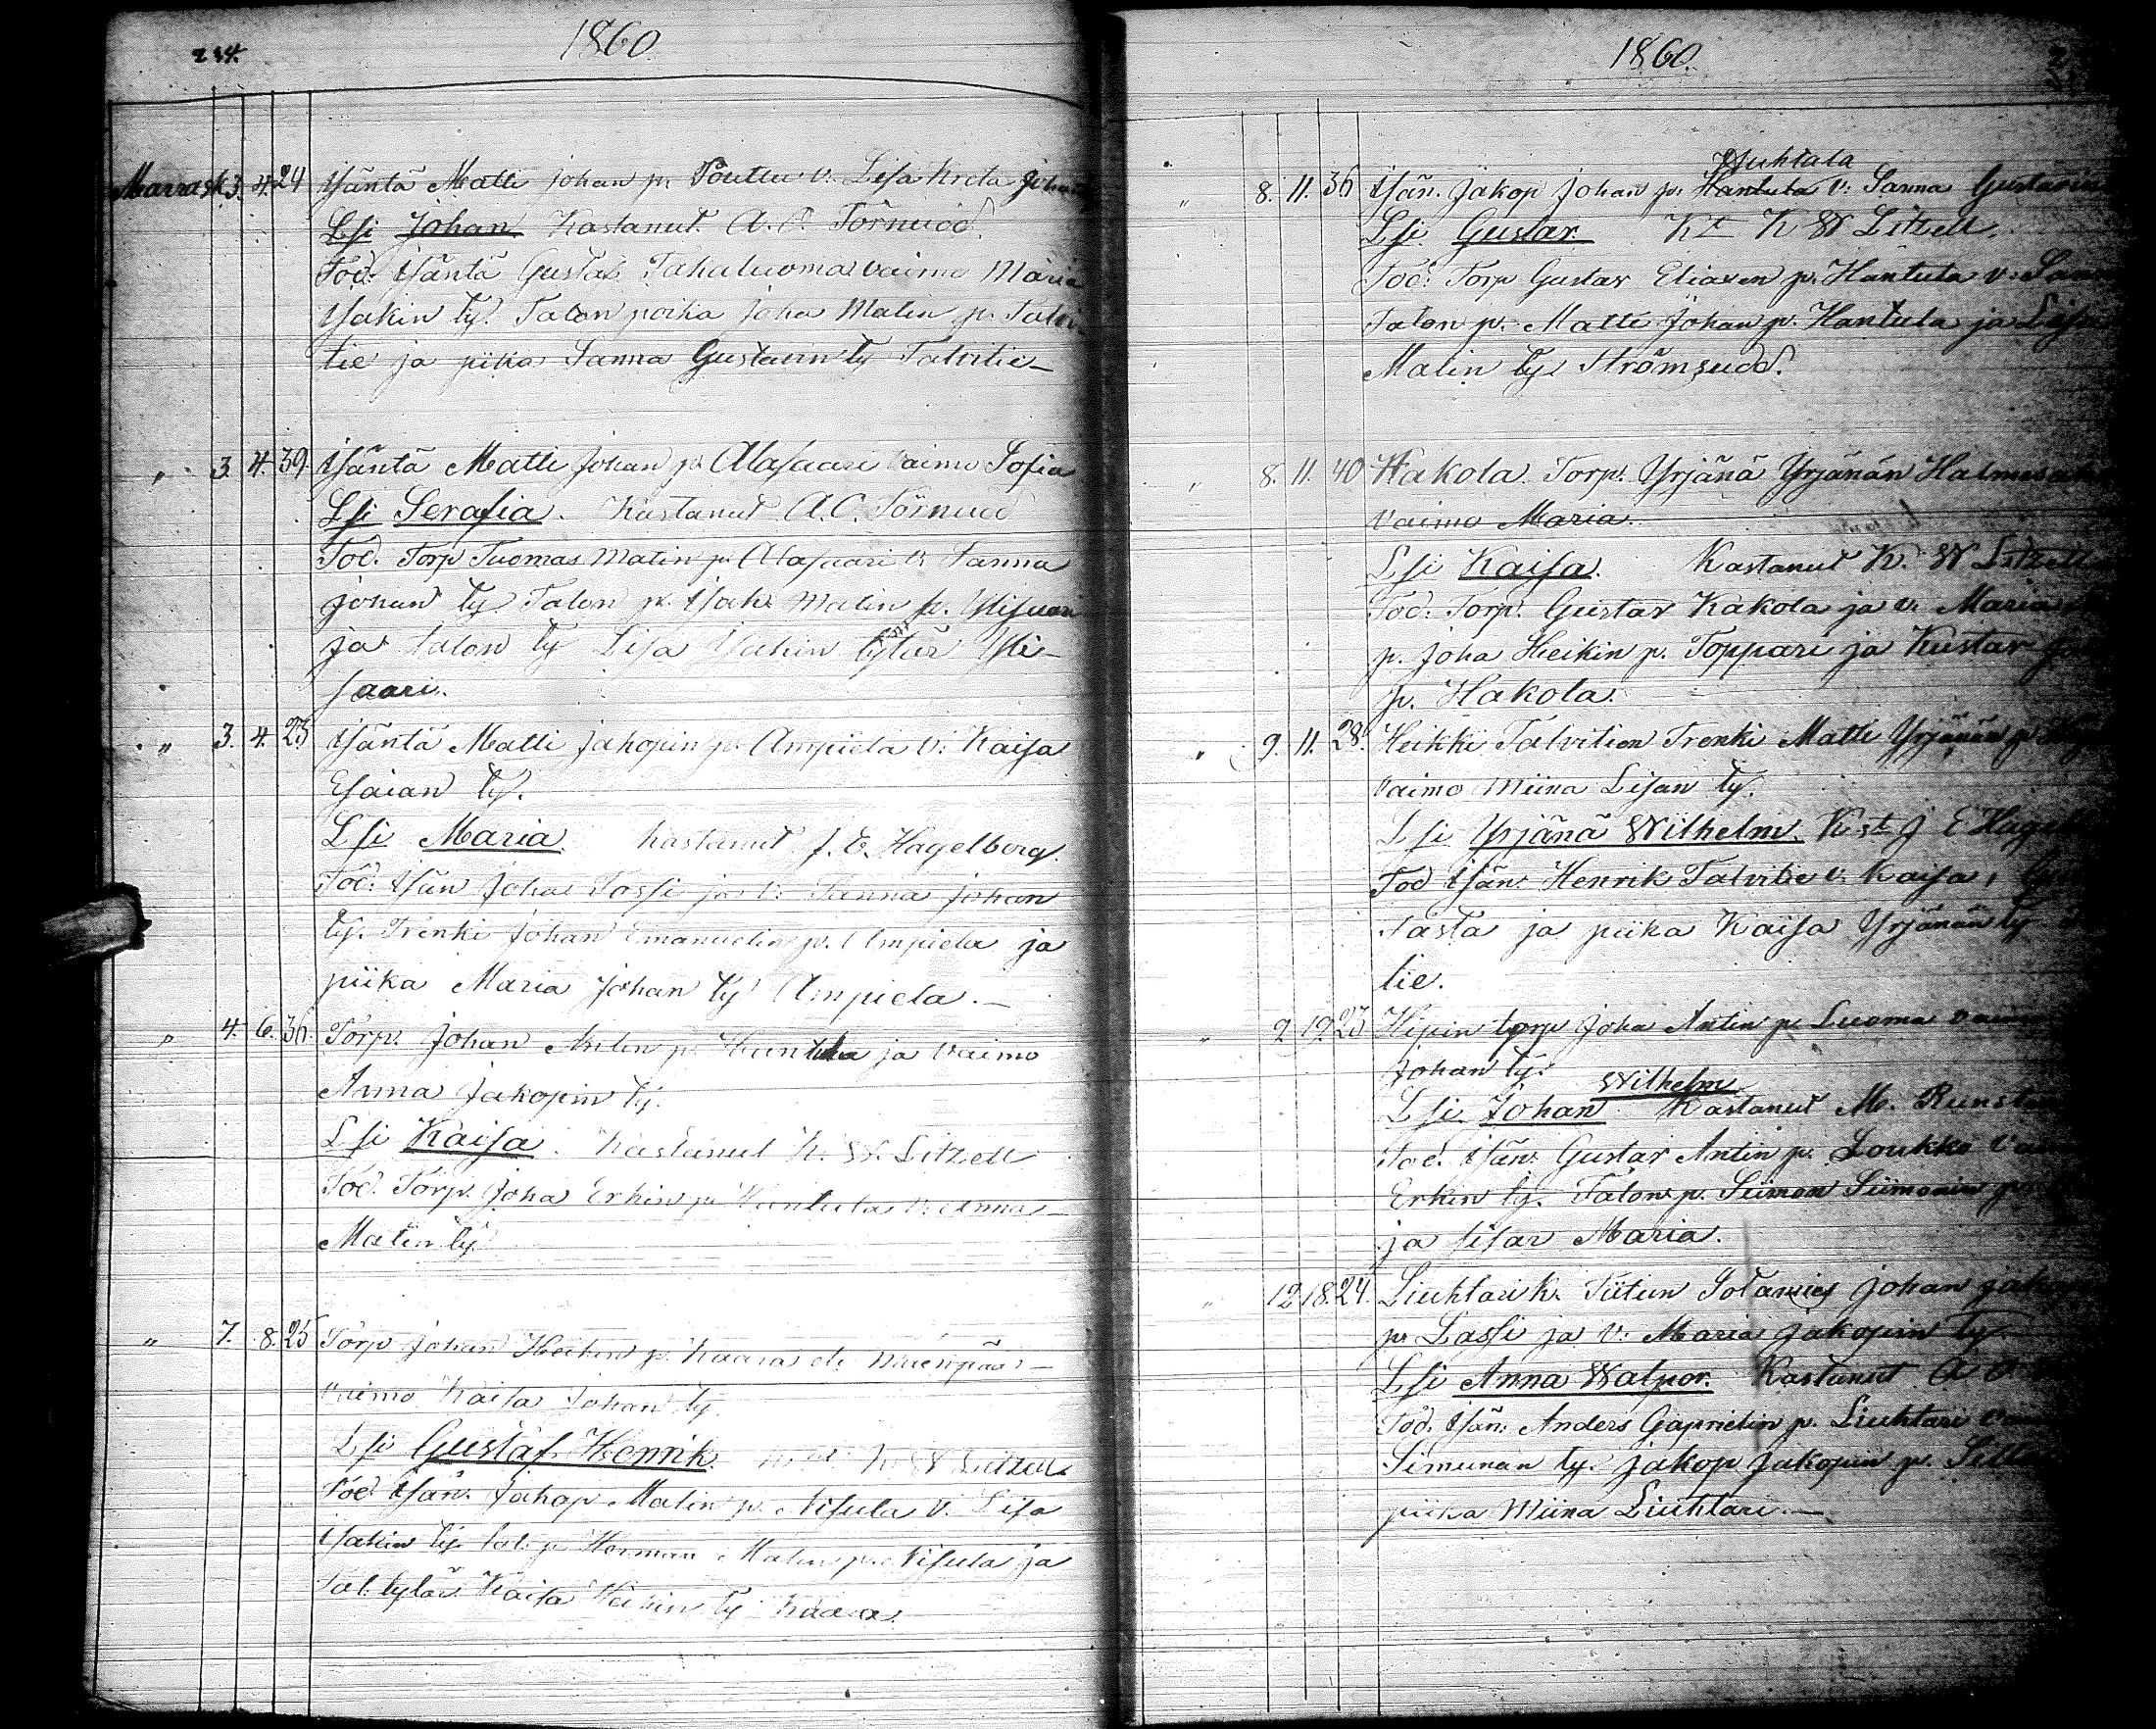 234.
1860
Marrask. 3. 4. 24 Isäntä Matti Johan p. Poutu v. Lisa Kreta Johan
Lsi Johan. Kastanut A. C. Törnudd
Tod. Isäntä Gustaf Takaluoma vaimo Maria
Isakin ty. Talon poika Joha Matin p. Talvi-
tie ja piika Sanna Gustavin ty Talvitie_
„ 3. 4. 39. Isäntä Matti Johan p. Alasaari vaimo Sofia
Lsi Serafia. Kastanut A. C. Törnudd
Tod. Torp Tuomas Matin p. Alasaari v. Sanna
Johan ty Talon p. Isak Matin p. Ylisaari
ja talon ty Lisa Isakin tytär Yli-
saari.
„ 3. 4. 23 Isäntä Matti Jakopin p. Ampiela v. Kaisa
Esaian ty.
Lsi Maria. Kastanut J. E. Hagelberg.
Tod. Isän Joha Sossi ja v. Sanna Johan
ty. Trenki Johan Emanuelin p. Ampiela ja
piika Maria Johan ty Ampiela._
„ 4. 6. 36. Torp. Johan Antin p. Hantula ja vaimo
Anna Jakopin ty.
Lsi Kaisa. Kastanut K. W. Litzell
Tod. Torp. Joha Erkin p. Hantula v. Anna
Matin ty
„ 7. 8. 25 Torp Johan Heikin p. Kaara
vaimo Kaisa Johan ty
Lsi Gustaf Henrik. K W Litzell
Tod Isän. Jakop Matin p. Nisula v. Lisa
Isakin ty. tal. p. Herman Matin p. Nisula ja
tal. tytär Kaisa Heikin ty Kaara.
1860.
Juhtala
„ 8. 11. 36 Isän. Jakop Johan p. Hantula v. Sanna Gustavin
Lsi Gustav. Kt K W Litzell.
Tod. Torp Gustav Eliaxen p. Hantula v.
Talon p. Matti Johan p. Hantula ja Lisa
Matin ty Strömsudd.
„ 8. 11. 40 Hakola. Torp. Yrjänä Yrjänän
vaimo Maria.
Lsi Kaisa. Kastanut K. W Litzell
Tod. Torp. Gustav Kakola ja v. Maria
p. Joha Heikin p. Toppari ja Kustav
p. Hakola.
„ 9. 11. 28. Heikki Talvitien Trenki Matti Yrjänän p.
vaimo Miina Lisan ty.
Lsi Yrjänä Wilhelm. Kst J E
Tod Isän. Henrik Talvitie v. Kaisa,
Tasta ja piika Kaisa Yrjänän ty
tie.
„ 9 12 23 Hipin torp Joha Antin p. Luoma
Johan ty.
Wilhelm
Lsi Johan. Kastanut M.
Tod. Isän. Gustav Antin p. Loukko
Erkin ty. Talon p. Siimon Siimonin
ja sisar Maria.
„ 12 18. 24. Liuhtari k. Tiitun Sotamies Johan
p. Lassi ja v. Maria Jakopin ty
Lsi Anna Walpor. Kastanut
Tod. Isän. Anders Gaprielin p. Liuhtari
Simunan ty. Jakop Jakopin p.
piika Miina Liuhtari._